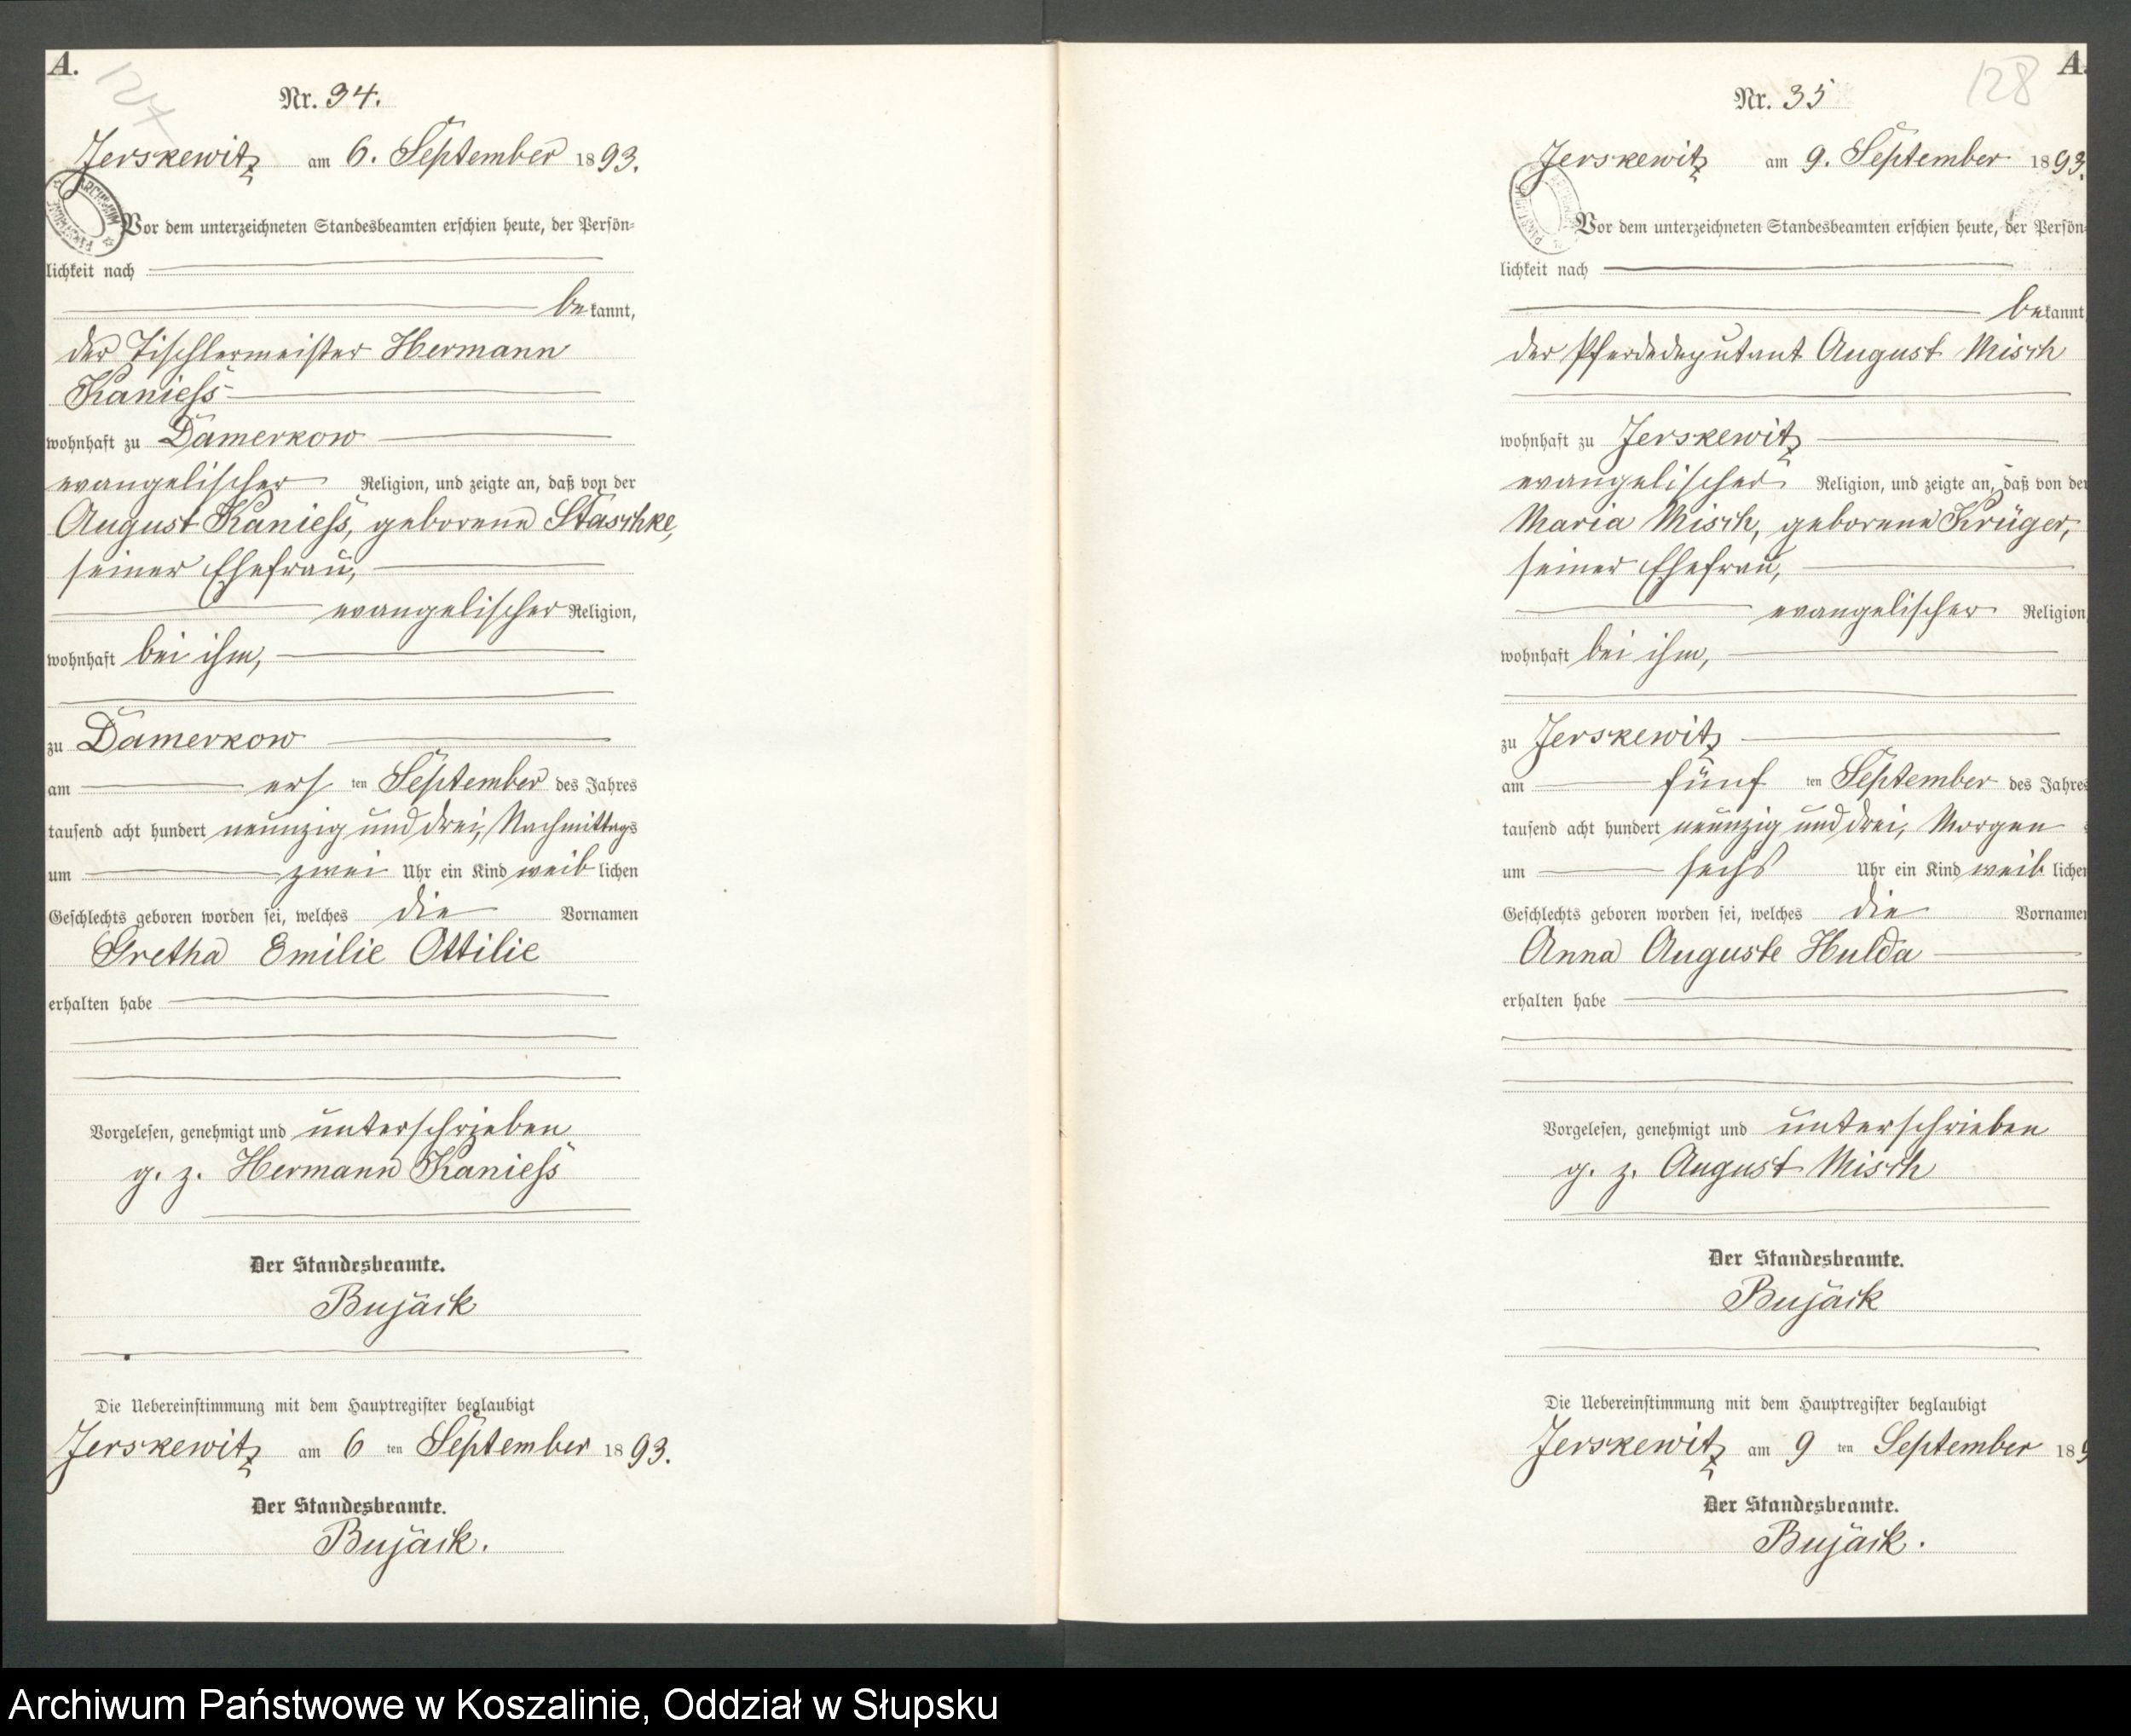 A.
127
Nr. 34.
Jerskewitz am 6. September 1893.
ARCHIWUM PAŃSTWOWE
Vor dem unterzeichneten Standesbeamten erschien heute, der Persön-
lichkeit nach
bekannt,
der Tischlermeister Hermann
Kaniess
wohnhaft zu Damerkow
evangelischer Religion, und zeigte an, daß von der
August Kaniess, geborene Staschke,
seiner Ehefrau,
evangelischer Religion,
wohnhaft bei ihm,
zu Damerkow
am ersten September des Jahres
tausend acht hundert neunzig und drei, Nachmittags
um zwei Uhr ein Kind weiblichen
Geschlechts geboren worden sei, welches die Vornamen
Gretha Emilie Ottilie
erhalten habe
Vorgelesen, genehmigt und unterschrieben
g. z. Hermann Kaniess
Der Standesbeamte.
Bujack
Die Uebereinstimmung mit dem Hauptregister beglaubigt
Jerskewitz am 6 ten September 1893.
Der Standesbeamte.
Bujack.
A.
128
Nr. 35
Jerskewitz am 9. September 1893.
Vor dem unterzeichneten Standesbeamten erschien heute, der Persön-
lichkeit nach
bekannt
der Pferdedeputant August Misch
wohnhaft zu Jerskewitz
evangelischer Religion, und zeigte an, daß von der
Maria Misch, geborene Krüger,
seiner Ehefrau,
evangelischer Religion
wohnhaft bei ihm,
zu Jerskewitz
am fünf ten September des Jahres
tausend acht hundert neunzig und drei, Morgen
um sechs Uhr ein Kind weiblichen
Geschlechts geboren worden sei, welches die Vornamen
Anna Auguste Hulda
erhalten habe
Vorgelesen, genehmigt und unterschrieben
g. z. August Misch
Der Standesbeamte.
Bujack
Die Uebereinstimmung mit dem Hauptregister beglaubigt
Jerskewitz am 9 ten September 189
Der Standesbeamte.
Bujack.
Archiwum Państwowe w Koszalinie, Oddział w Słupsku